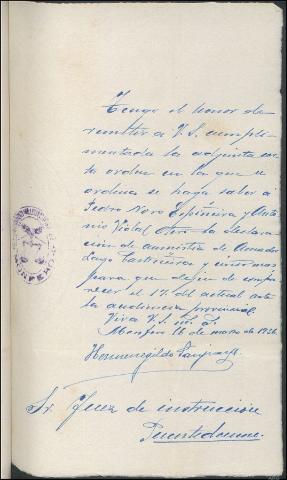 Tengo el honor de
remitir a V.S. cumpli-
mentada la adjunta car-
ta orden en la que se
ordena se haga saber a
Pedro Novo Espiñeira y Anto-
nio Vidal la declara-
ción de amnistia de Amador
Lago Castiñeira y
para que dejen de compa-
recer el 17 del actual ante
la audiencia provincial.
Viva V.S. m. a.
Monfero 16 de marzo de 1936
Hermenegildo
Sr. Juez de instrucción
Puentedeume.